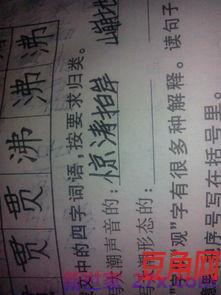 贯 贯 沸 沸 沸
文中的四字词语,按要求归类。
写大潮声音的:惊涛拍岸 山崩地
大潮形态的:
“观”字有很多种解释。读句子
序号写在括号里。
豆角网